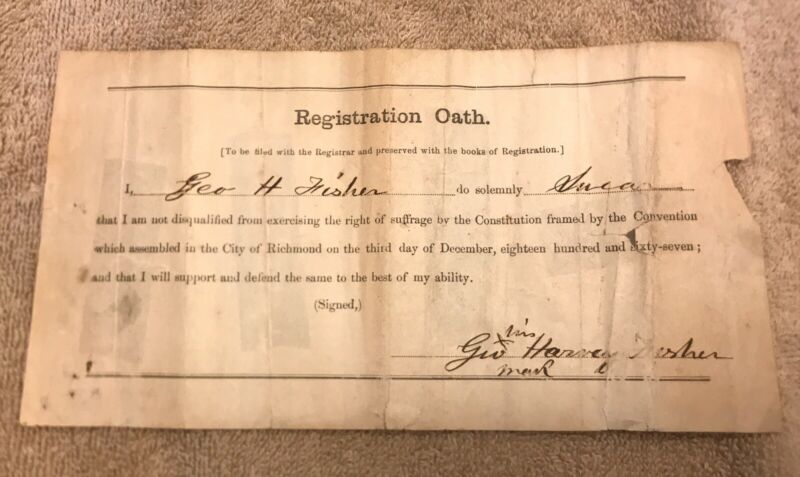 Registration Oath.
[To be filed with the Registrar and preserved with the books of Registration.]
I, Geo H Fisher do solemnly Swear
that I am not disqualified from exercising the right of suffrage by the Constitution framed by the Convention
which assembled in the City of Richmond on the third day of December, eighteen hundred and sixty-seven ;
and that I will support and defend the same to the best of my ability.
(Signed,)
his
Geo X Harvey Fisher
mark